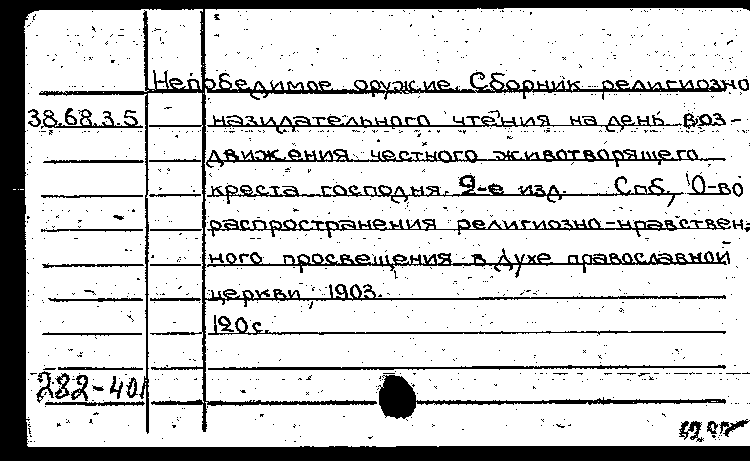 Непобедимое оружие. Сборник религиозно
38.68.3.5 назидательного чтения на день воз-
движения честного животворящего
креста господня. 2-е изд. Спб., О-во
распространения религиозно-нравствен-
ного просвещения в духе православной
церкви, 1903.
120 с.
282-401